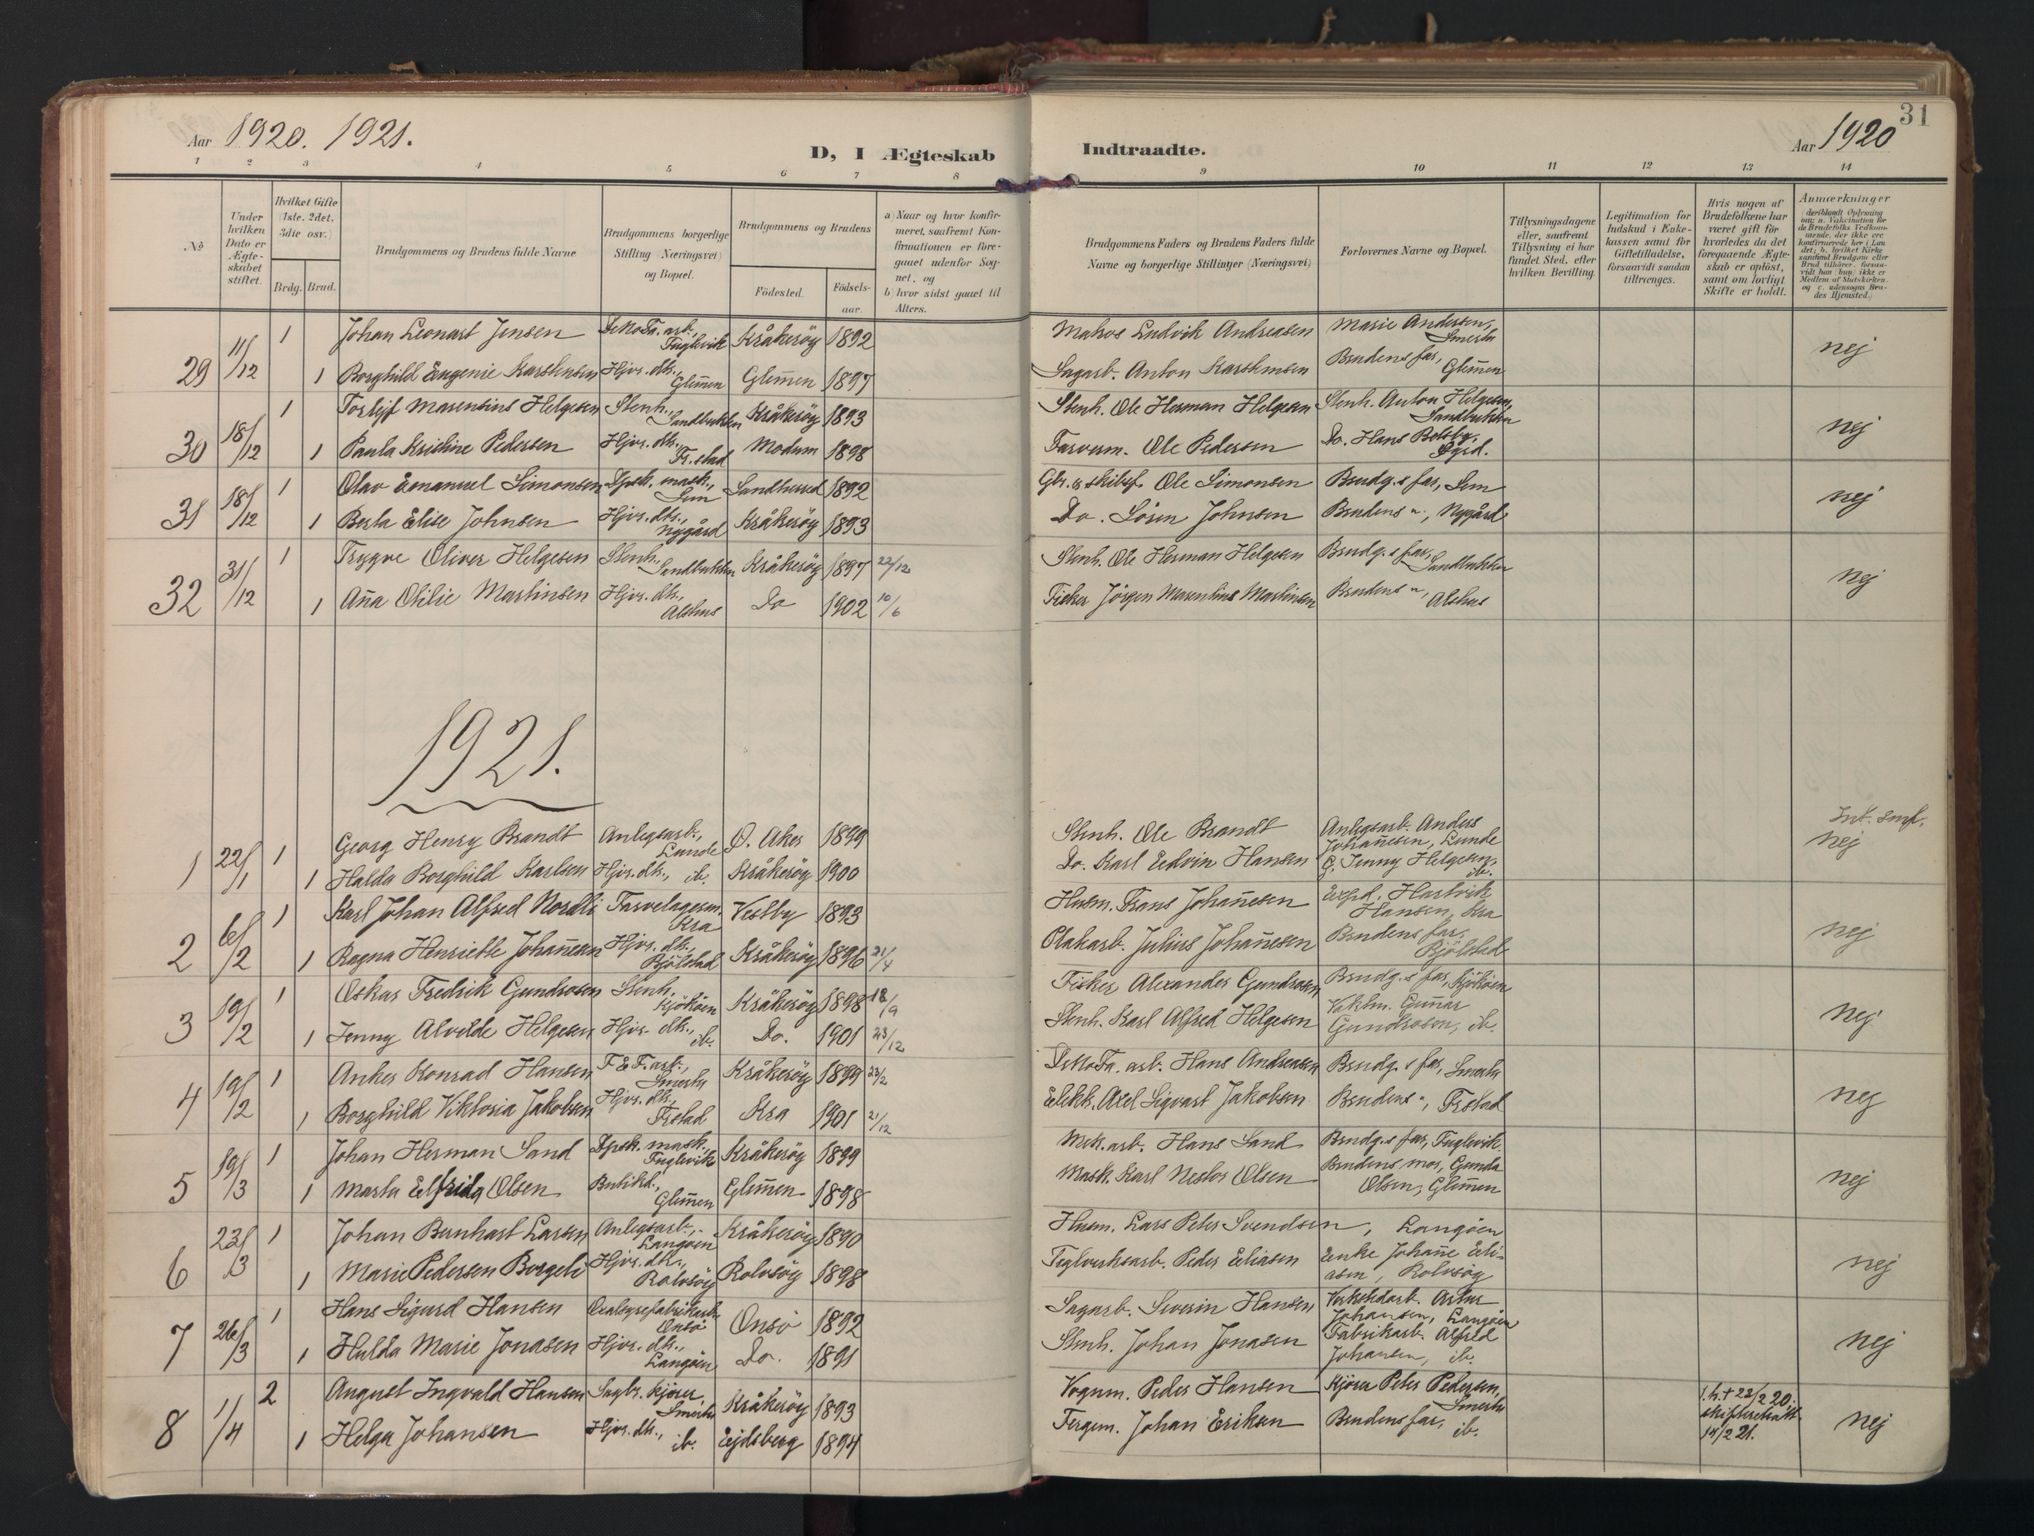 31
Aar 1920. 1921.
D, I Ægteskab Indtraadte.
Aar 1920
1 2 3 4 5 6 7 8 9 10 11 12 13 14
No
Under hvilken Dato er Ægteskabet stiftet.
Hvilket Gifte (1ste, 2det, 3die osv.)
Brdg. Brud.
Brudgommens og Brudens fulde Navne
Brudgommens borgerlige Stilling (Næringsvei) og Bopæl.
Brudgommens og Brudens
Födested. Födselsaar.
a) Naar og hvor konfirmeret, saafremt Konfirmationen er foregaaet udenfor Sognet, og
b) hvor sidst gaaet til Alters.
Brudgommens Faders og Brudens Faders fulde Navne og borgerlige Stillinger (Næringsvei)
Forlovernes Navne og Bopæl.
Tillysningsdagene eller, saafremt Tillysning ei har fundet Sted, efter hvilken Bevilling.
Legitimation for Indskud i Enkekassen samt for Giftetilladelse, forsaavidt saadan tiltrænges.
Hvis nogen af Brudefolkene har været gift før hvorledes da det foregaaende Ægteskab er oplöst, samt om lovligt Skifte er holdt.
Anmærkninger
29 11/12 1 Johan Leonart Jensen DeNoFa. arb., Fuglevik Kråkeröy 1892 Ludvik Andreasen Marie Andersen, Smerta nej
1 Borghild Eugenie Karstensen Hjvr. dtr., Glem̅en Glem̅en 1897 Sagarb. Anton Karstensen Brudens far, Glem̅en
30 18/12 1 Torleif Marensius Helgesen Stenh., Sandbukken Kråkeröy 1893 Stenh. Ole Herman Helgesen Stenh. Anton Helgesen, Sandbukken nej
1 Paula Kristine Pedersen Hjvr. dtr., Fr.stad Modum 1898 Farverm. Ole Pedersen Do. Hans
31 18/12 1 Olav Emanuel Simonsen Spek. mask., Lem Sandherred 1892 Gbr. & skibsf. Ole Simonsen Brudg.s far, Lem nej
1 Berta Elise Johnsen Hjvr. dtr., Nygård Kråkeröy 1893 Do. Sören Johnsen Brudens ", Nygård
32 31/12 1 Trygve Oliver Helgesen Stenh., Sandbukken Kråkeröy 1897 22/12 Stenh. Ole Herman Helgesen Brudg.s far, Sandbukken nej
1 An̅a Otilie Martinsen Hjvr. dtr., Alshus Do 1902 10/6 Fisker Jörgen Marentius Martinsen Brudens ", Alshus
1921.
1 22/1 1 Georg Henry Brandt Anlegsarb., Lunde Ö. Aker 1899 Stenh. Ole Brandt Anlegsarb. Anders Johan̅esen, Lunde nej
1 Halda Borghild Karlsen Hjvr. dtr., ib. Kråkeröy 1900 Do. Karl Edvin Hansen Jenny Helgesen, ib.
2 6/2 1 Karl Johan Alfred Nordli Farvelagerm., Kra Vestby 1893 Husm. Frans Johan̅esen Expd. Hartvik Hansen, Kra nej
1 Ragna Henriette Johan̅esen Hjvr. dtr., Bjölstad Kråkeröy 1896 21/4 Plakarb. Julius Johan̅esen Brudens far, Bjölstad
3 19/2 1 Oskar Fredrik Gundrosen Stenh., Kjököen Kråkeröy 1898 18/9 Fisker Alexander Gundrosen Brudg.s far, Kjököen nej
1 Jenny Alvilde Helgesen Hjvr. dtr., ib. Do. 1901 23/12 Stenh. Karl Alfred Helgesen Gun̅ar Gundrosen, ib.
4 19/2 1 Anker Konrad Hansen F. & F. arb., Smerta Kråkeröy 1899 23/2 DeNoFa. arb. Hans Andreasen Brudg.s far, Smerta nej
1 Borghild Viktoria Jakobsen Hjvr. dtr., Frstad Kra 1901 21/12 Axel Sigvart Jakobsen Brudens ", Frstad
5 19/3 1 Johan Herman Sand Spek. mask., Fuglevik Kråkeröy 1899 Mek. arb. Hans Sand Brudg.s far, Fuglevik nej
1 Marta Elfrida Olsen Glem̅en Glem̅en 1898 Mask. Karl Nestor Olsen Brudens mor, Gunda Olsen, Glem̅en
6 23/3 1 Johan Bernhart Larsen Anlegsarb., Langöen Kråkeröy 1890 Husm. Lars Peter Svendsen, Langöen
1 Marie Pedersen Borgeli Hjvr. dtr., Rolvsöy Rolvsöy 1898 Teglverksarb. Peder Eliasen Enke Johan̅e Eliasen, Rolvsöy nej
7 26/3 1 Hans Sigurd Hansen Oxalsyrefabrikarb. Onsö Onsö 1892 Sagarb. Severin Hansen Artur Johansen, Langöen nej
1 Hulda Marie Jonasen Hjvr. dtr., Langöen Do. 1891 Stenh. Johan Jonasen Fabrikarb. Alfred Johansen, ib.
8 1/4 2 August Ingvald Hansen Sagbr. kjörer, Smerta Kråkeröy 1893 Vognm. Peder Hansen Kjörer Peter Pedersen, Smerta 1. h. † 22/2 20. skifteretsatt. 14/2 21. nej
1 Helga Johansen Hjvr. dtr., ib. Ejdsberg 1894 Fergem. Johan Eriksen Brudens far, ib.